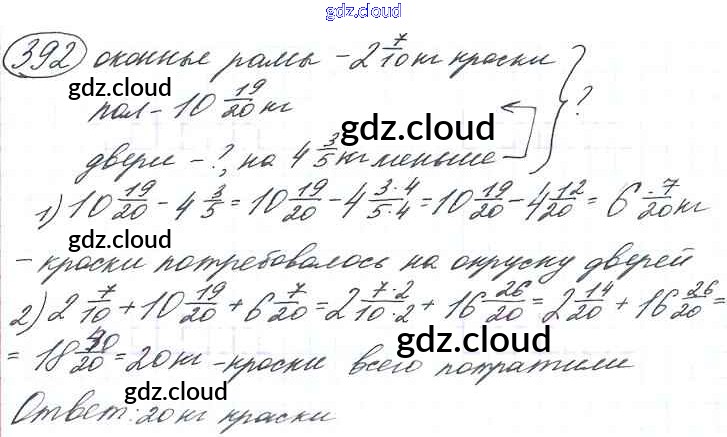 gdz.cloud
392 оконные рамы - 2 7/10 кг краски
gdz.cloud
пол - 10 19/20 кг
gdz.cloud
двери - ?, на 4 3/5 кг меньше
?
1) 10 19/20 - 4 3/5 = 10 19/20 - 4 3·4/5·4 = 10 19/20 - 4 12/20 = 6 7/20 кг
gdz.cloud
- краски потребовалось на окруску дверей
2) 2 7/10 + 10 19/20 + 6 7/20 = 2 7·2/10·2 + 16 26/20 = 2 14/20 + 16 26/20 =
gdz.cloud
= 18 40/20 = 20 кг - краски всего потратили
gdz.cloud
Ответ: 20 кг краски